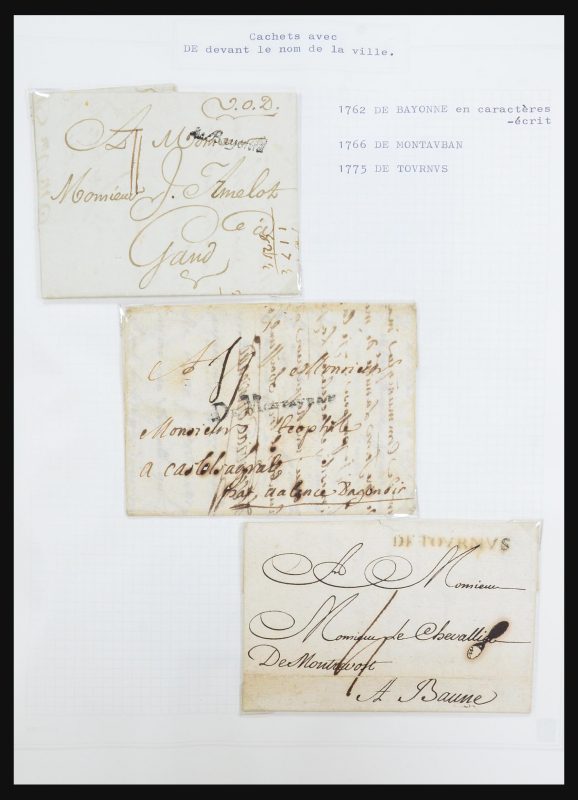 Cachets avec
DE devant le nom de la ville.
1762 DE BAYONNE en caractères
-écrit
1766 DE MONTAVBAN
1775 DE TOVRNVS
V.O.D.
De Bayonne
A Mon
Monsieur J. Amelot
à
Gand
A Monsieur
De Montavban
Monsieur teophile
a castelsagrat
par valence Dagenois
DE TOVRNVS
A Monsieur
Monsieur de Chevallier
De Montrevost
A Baune